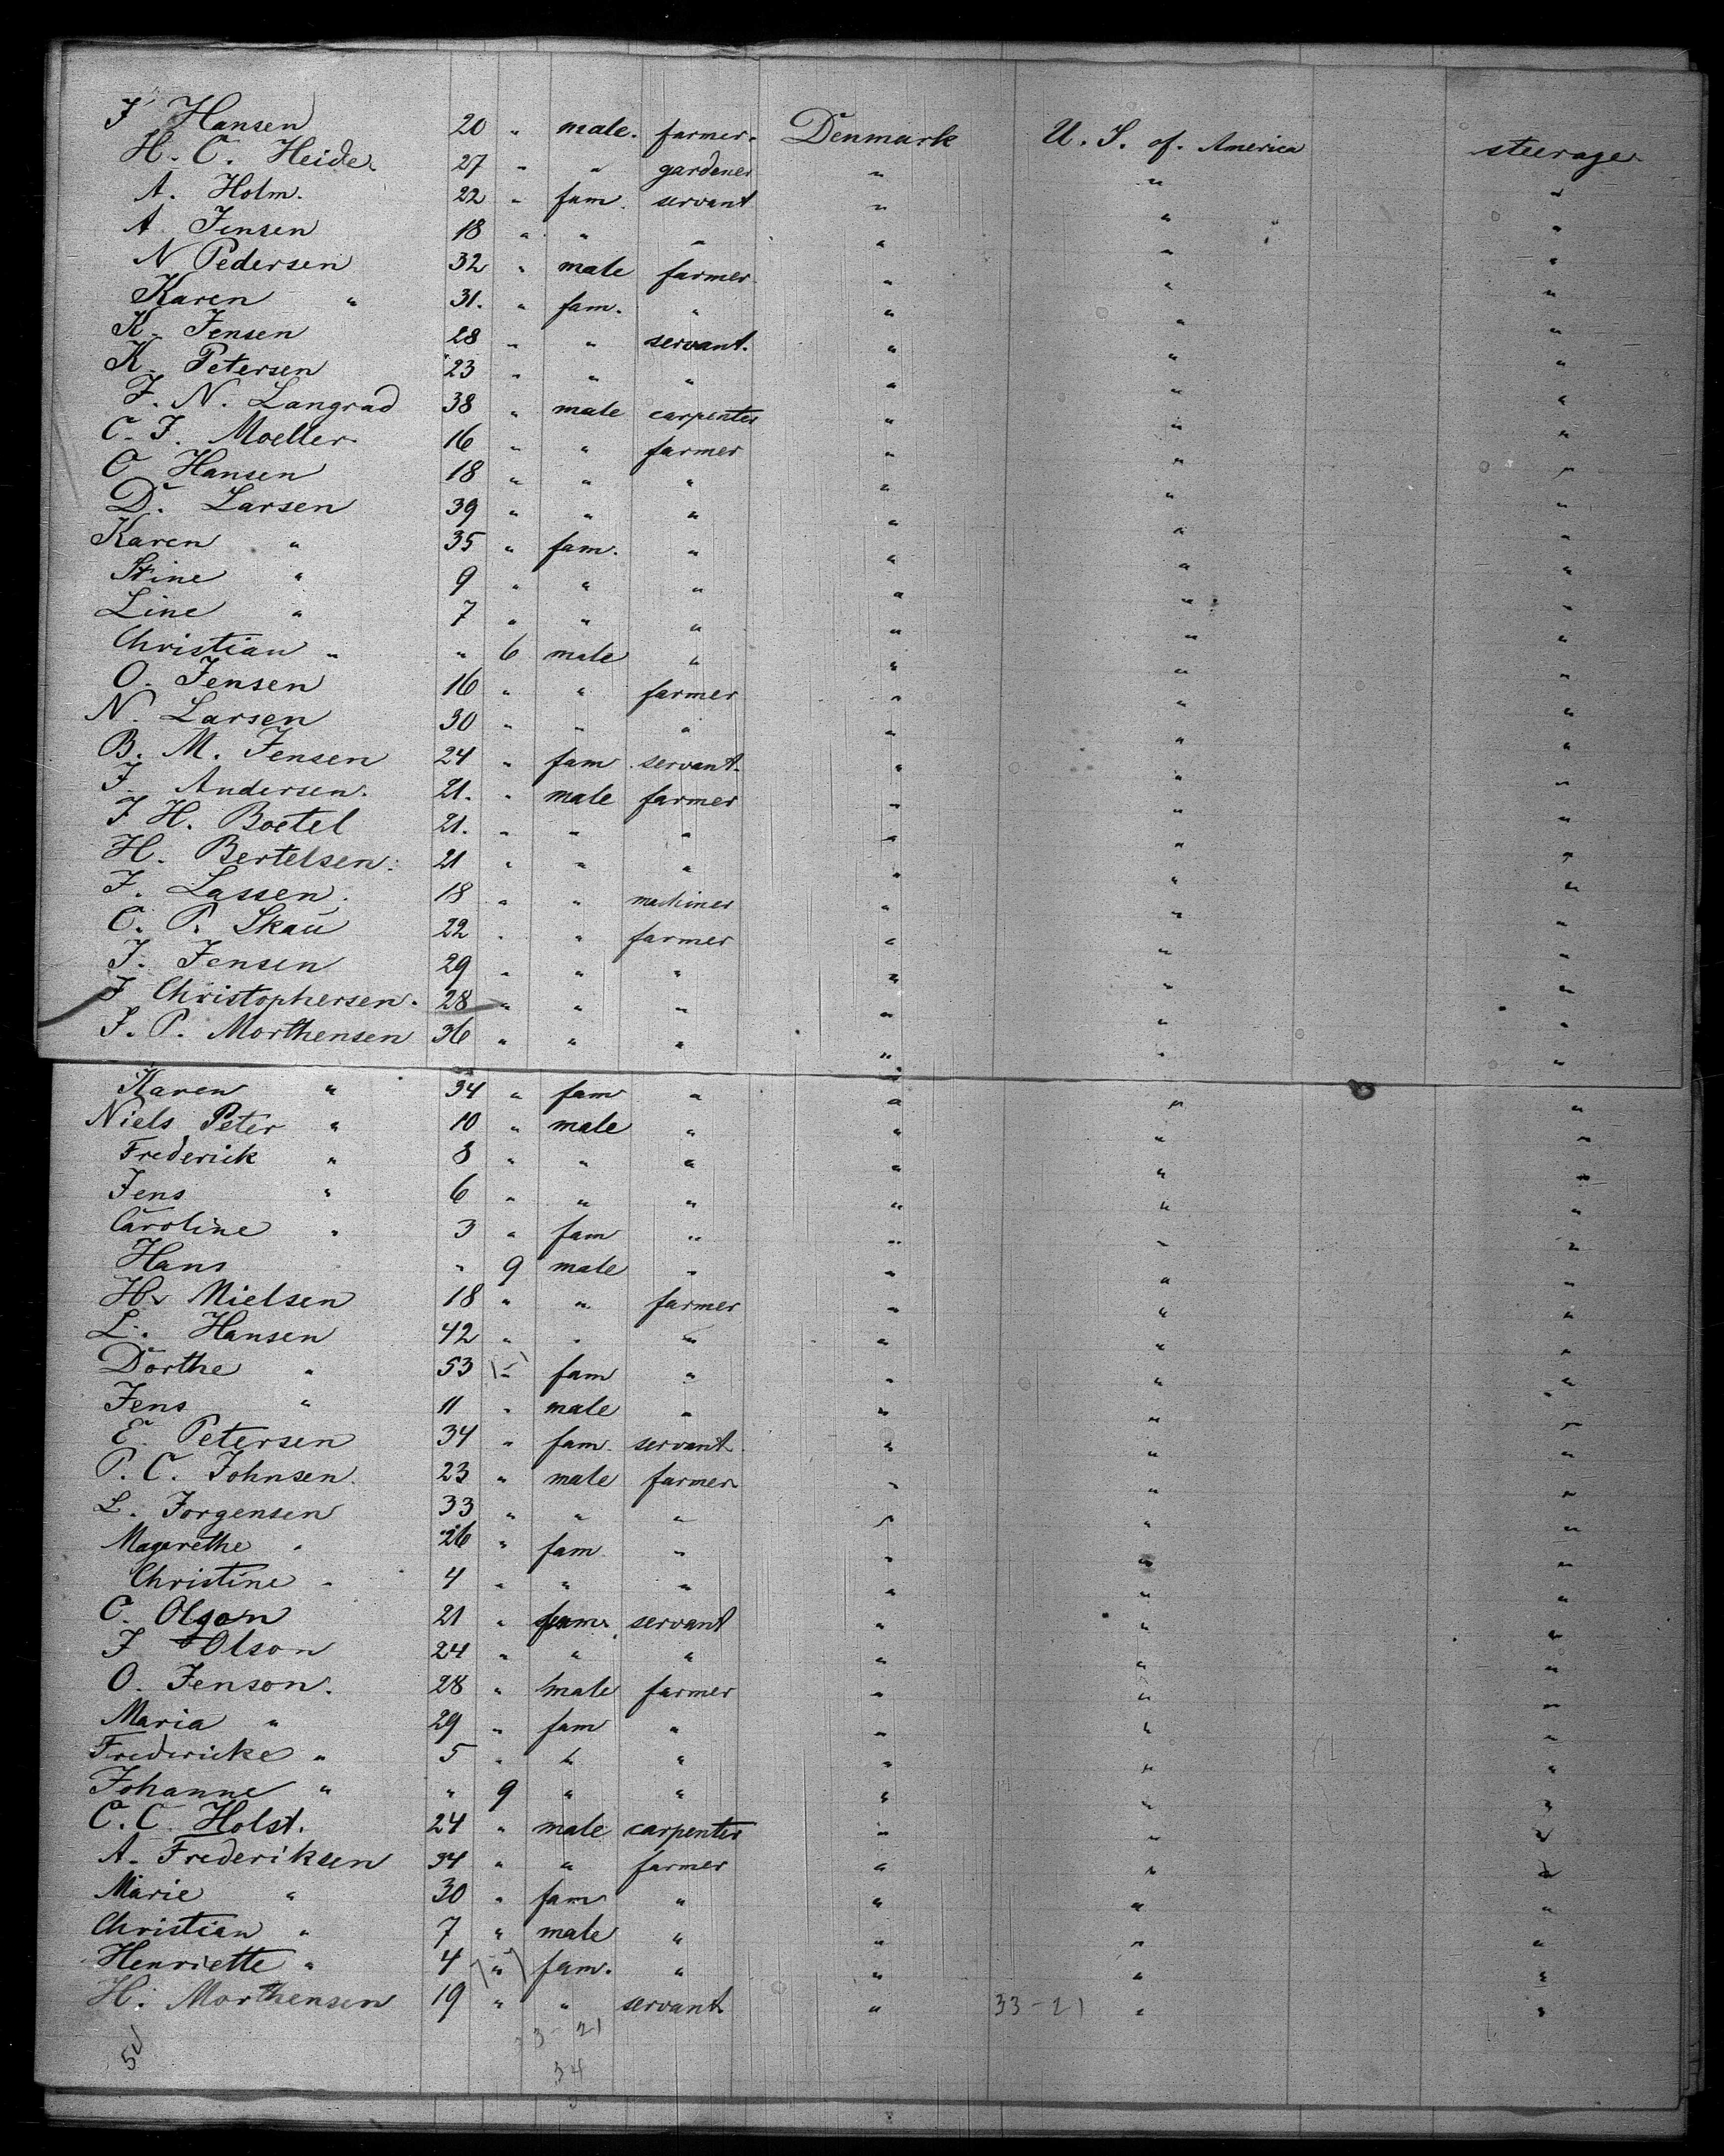 J Hansen 20 " male. farmer. Denmark U. S. of. America steerage
H. C. Heide 27 " " gardener " " "
A. Holm. 22 " fam. servant " " "
A Jensen 18 " " " " " "
N Pedersen 32 " male farmer " " "
Karen " 31. " fam. " " " "
K. Jensen 28 " " servant. " " "
K. Petersen 23 " " " " " "
J. N. Langrad 38 " male carpenter " " "
C. J. Moeller 16 " " farmer " " "
C Hansen 18 " " " " " "
D. Larsen 39 " " " " " "
Karen " 35 " fam. " " " "
Stine " 9 " " " " " "
Line " 7 " " " " " "
Christian " " 6 male " " " "
O. Jensen 16 " " farmer " " "
N. Larsen 30 " " " " " "
B. M. Jensen 24 " fam. servant. " " "
J. Andersen. 21. " male farmer " " "
J H. Boetel 21. " " " " " "
H. Bertelsen. 21 " " " " " "
J. Lassen. 18 " " machiner " " "
C. P. Skau 22 " " farmer " " "
J. Jensen 29 " " " " " "
J Christophersen. 28 " " " " " "
S. P. Morthensen 36 " " " " " "
Karen " 34 " fam " " " "
Niels Peter " 10 " male " " " "
Frederick " 8 " " " " " "
Jens " 6 " " " " " "
Caroline " 3 " fam " " " "
Hans " 9 male " " " "
H. Nielsen 18 " " farmer " " "
L. Hansen 42 " " " " " "
Dorthe " 53 " fam " " " "
Jens " 11 " male " " " "
E. Petersen 34 " fam. servant " " "
P. C. Johnsen. 23 " male farmer " " "
L. Jorgensen 33 " " " " " "
Magarethe " 26 " fam " " " "
Christine " 4 " " " " " "
C. Olson 21 " fam. servant " " "
J Olson 24 " " " " " "
O. Jenson. 28 " male farmer " " "
Maria " 29 " fam " " " "
Fredericke " 5 " " " " " "
Johanne " " 9 " " " " "
C. C. Holst. 24 " male carpenter " " "
A. Frederiksen 34 " " farmer " " "
Marie " 30 " fam " " " "
Christian " 7 " male " " " "
Henriette " 4 " fam. " " " "
H. Morthensen 19 " " servant " 33-21 " "
3-21
34